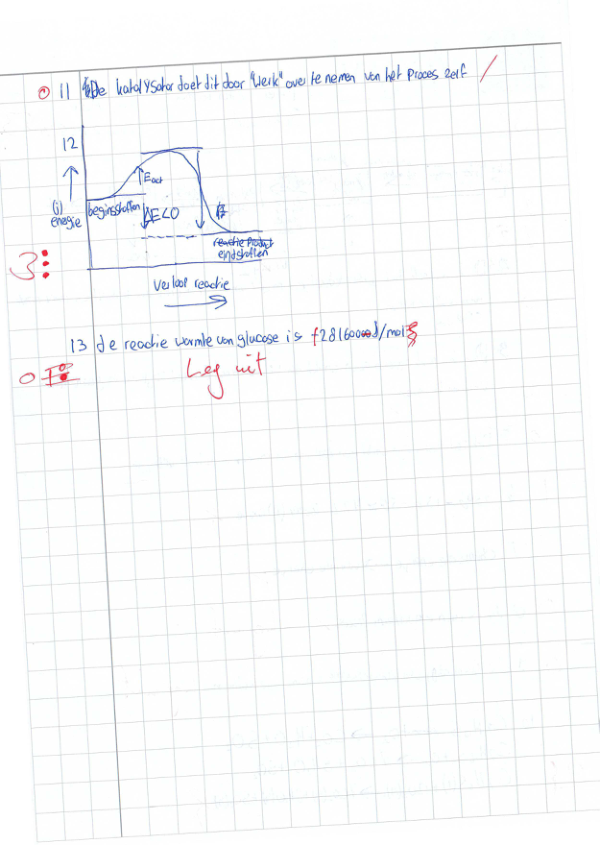 0 11 De katalysator doet dit door "werk" over te nemen van het proces zelf /
12
Eact
(j)
energie
beginstoffen
ΔE<0
reactie product
eindstoffen
3
verloop reactie
13 de reactie warmte van glucose is
0
Leg uit